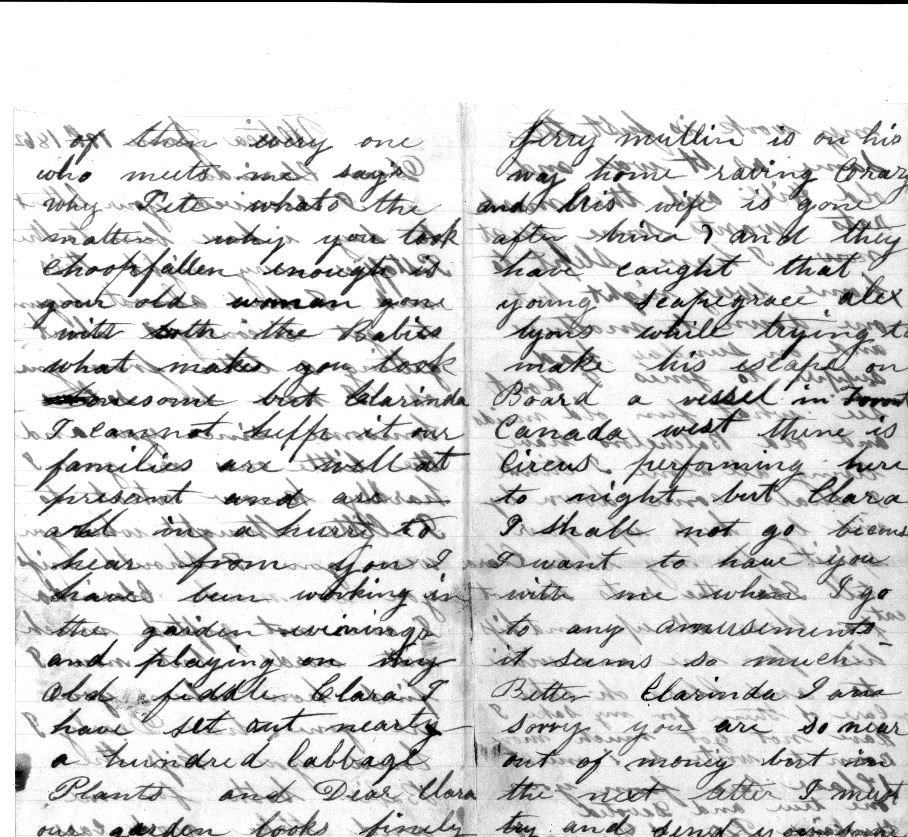 of them every one
who meets me say's
why Tete whats the
matter why you look
Choopfallen enough is
your old woman gone
with both the Babies
what makes you look
lonesome but Clarinda
I can not helpe it our
families are well at
present and are
all in a hurry to
hear from you I
have been working in
the garden evenings
and playing on my
old fiddle Clara I
have set out nearly
a hundred Cabbage
Plants and Dear Clara
our garden looks finely
Jerry mullin is on his
way home raving Crazy
and his wife is gone
after him and they
have caught that
young scapegrace alex
lyons while trying to
make his escape on
Board a vessel in
Canada west there is
Circus performing here
to night but Clara
I shall not go
I want to have you
with me when I go
to any amusements
it seems so much
Better Clarinda I am
sorry you are so near
out of money but in
the next letter I must
try and send you